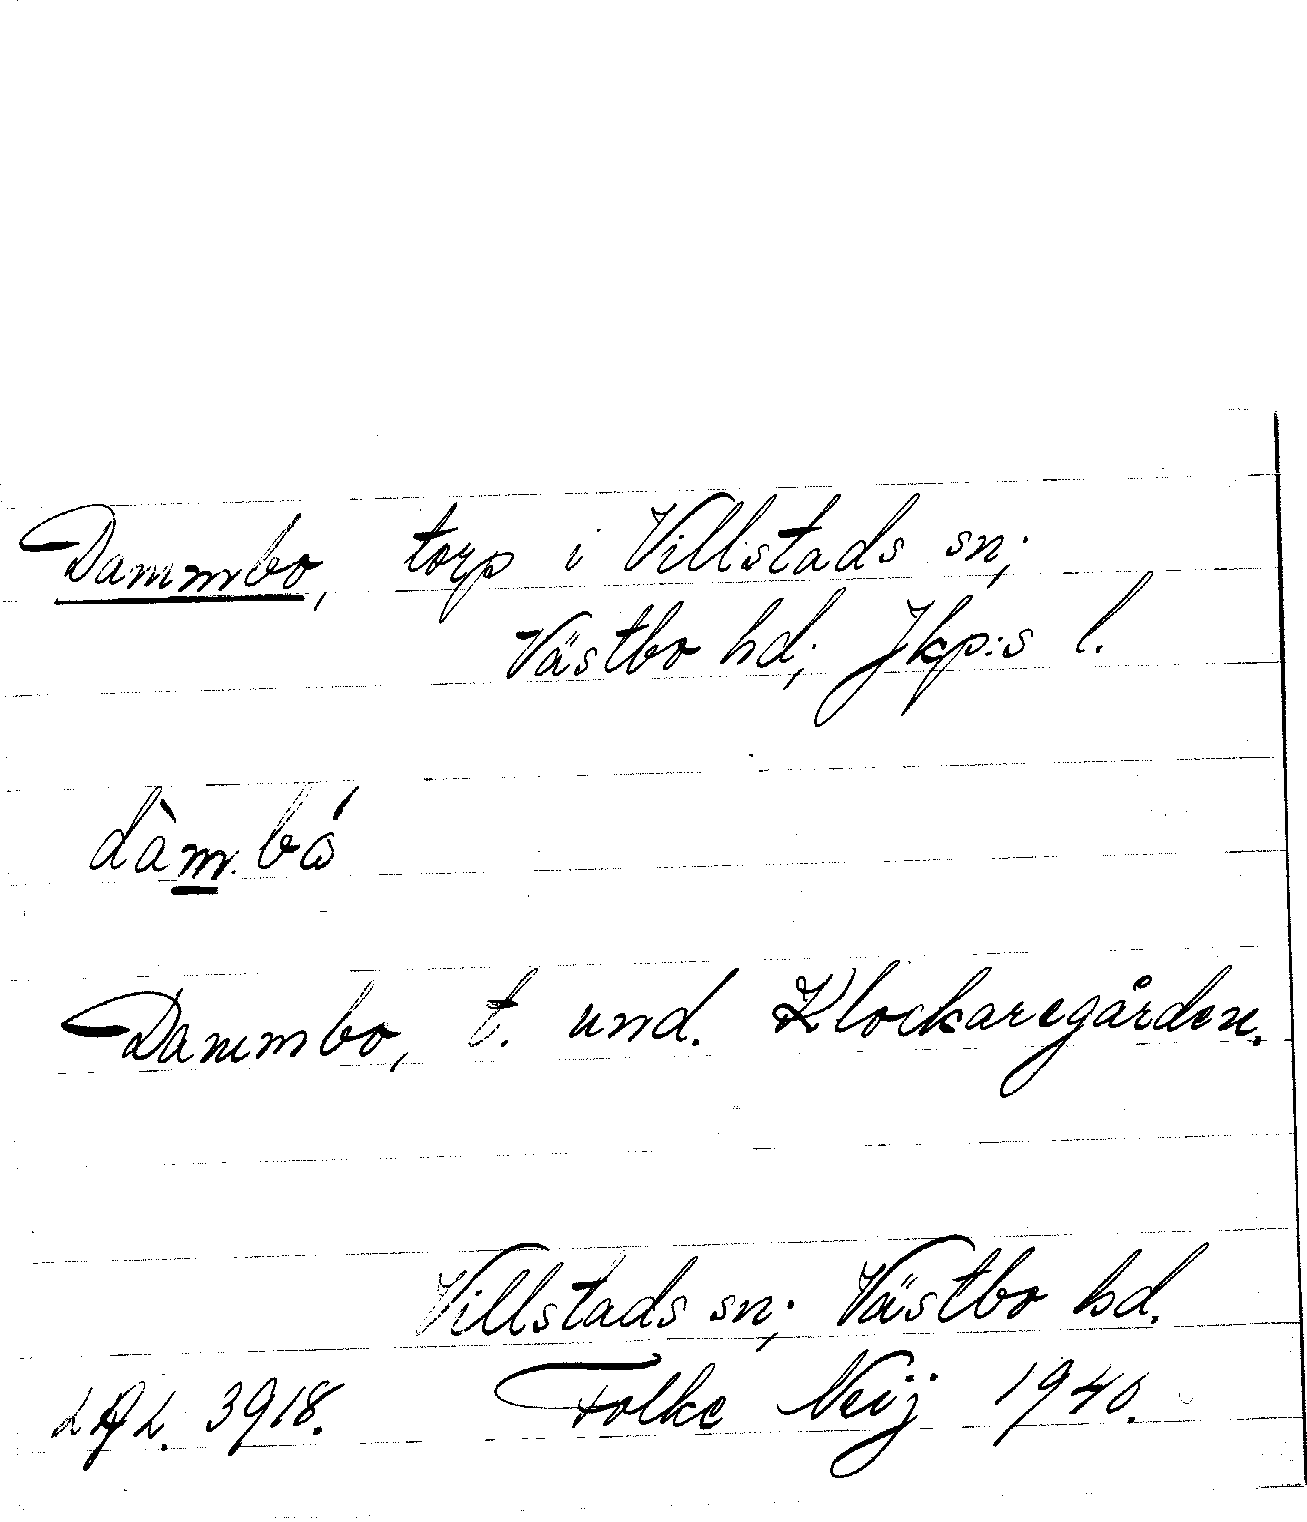 Dammbo, torp i Villstads sn;
Västbo hd; Jkp:s l.
dàm.bó
Dammbo, t. und. Klockaregården.
Villstads sn; Västbo hd.
3918. Folke Neij 1940.